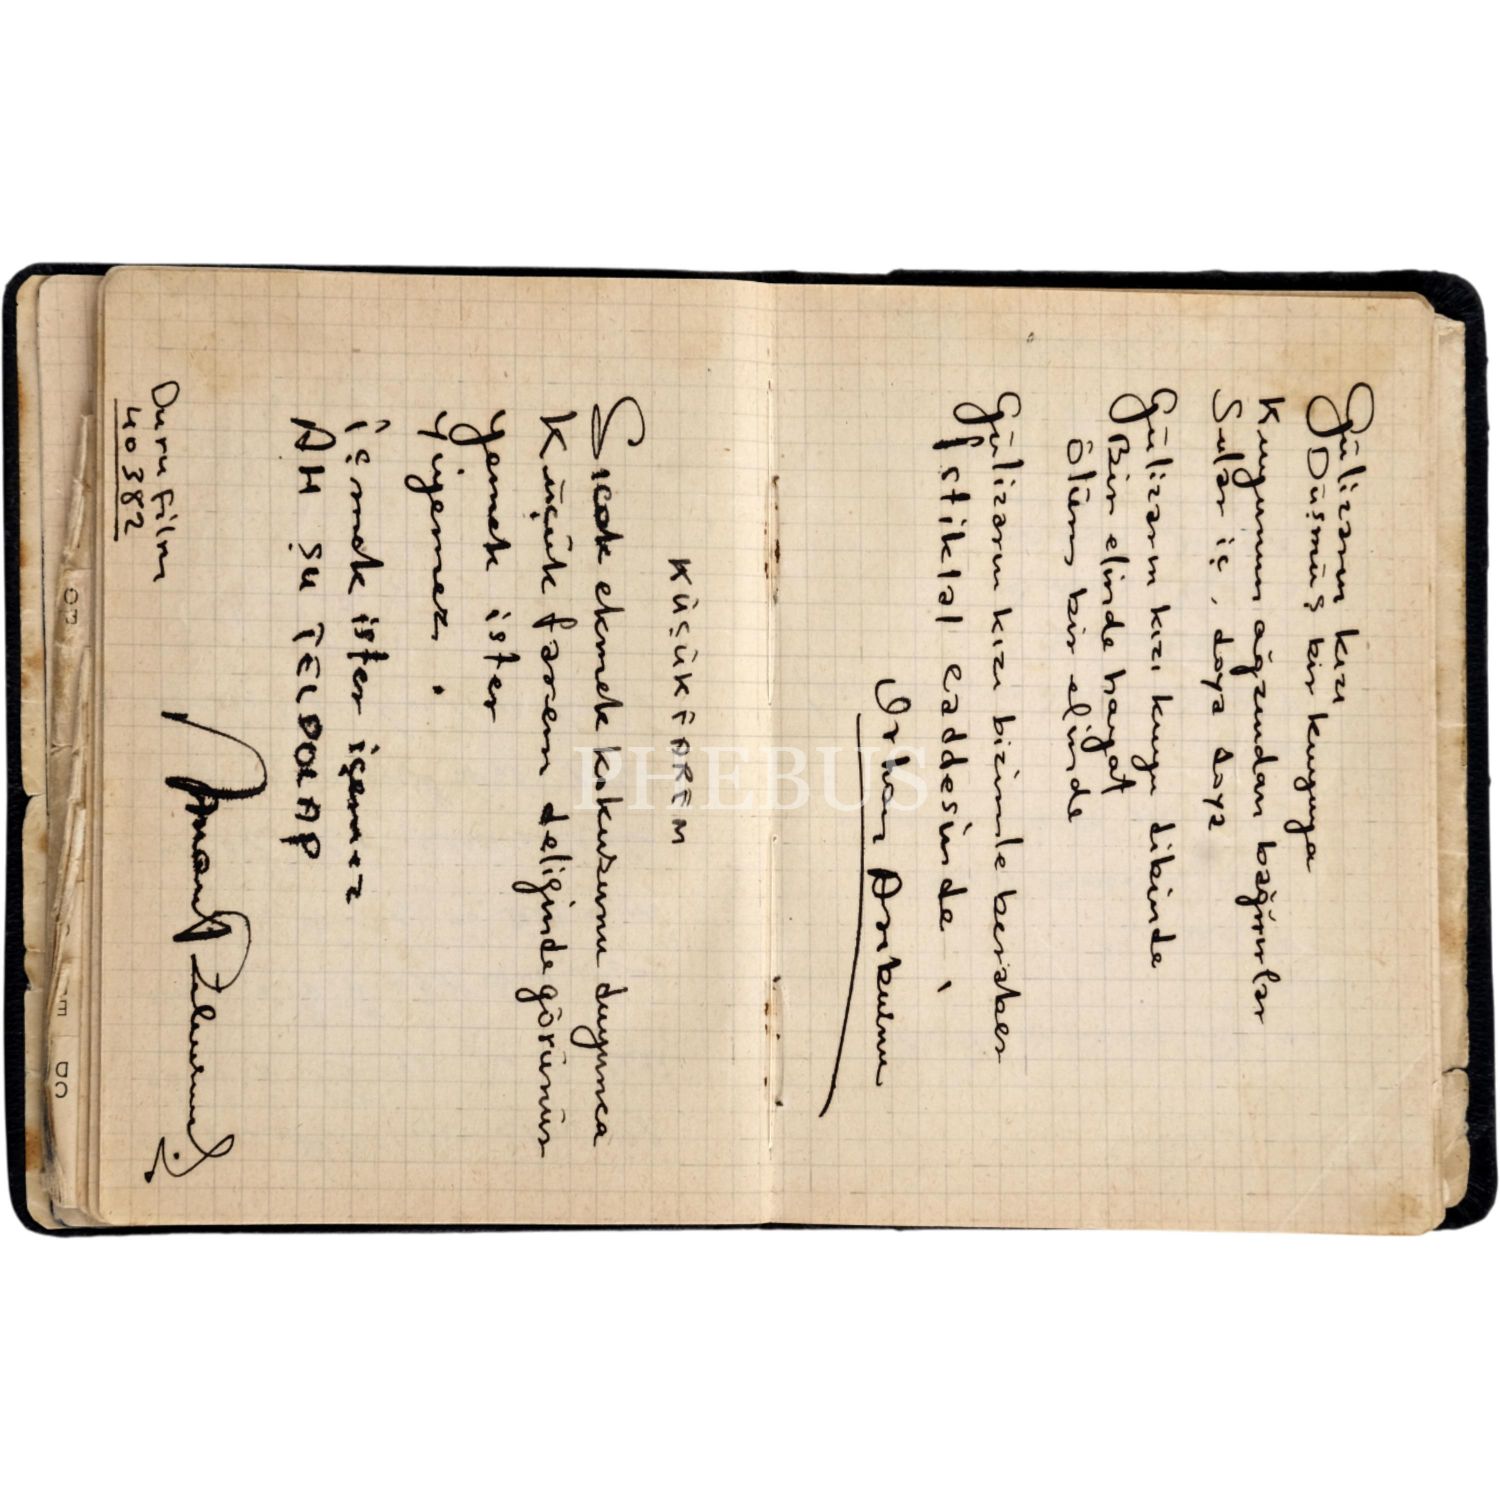 Gülizarın kızı
Düşmüş bir kuyuya
Kuyunun ağzından bağırırlar
Suları iç, doya doya
Gülizarın kızı kuyu dibinde
Bir elinde hayat
Ölüm bir elinde
Gülizarın kızı bizimle beraber
İstiklal caddesinde
Orhan Arıburnu
KÜÇÜK FAREM
Sıcak ekmek kokusunu duyunca
Küçük farem deliginde görünür
yemek ister
yiyemez.
içmek ister içemez
AH ŞU TELDOLAP
Duru Film
40 382
PHEBUS